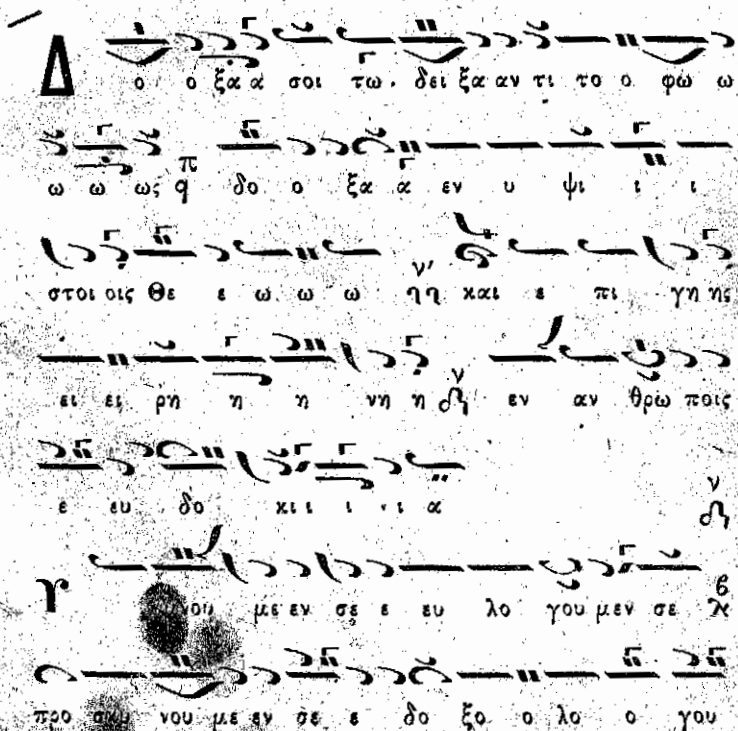 Δ ο ο ξα α σοι τω δει ξα αν τι το ο φω ω
ω ω ως π q δο ο ξα α εν υ ψι ι ι
στοι οις Θε ε ω ω ω ν' ηη και ε πι γη ης
ει ει ρη η η νη η ν εν αν θρω ποις
ε ευ δο κι ι ι ι α
ν
Υ νου με εν σε ε ευ λο γου μεν σε β
προ σκυ νου με εν σε ε δο ξο ο λο ο γου